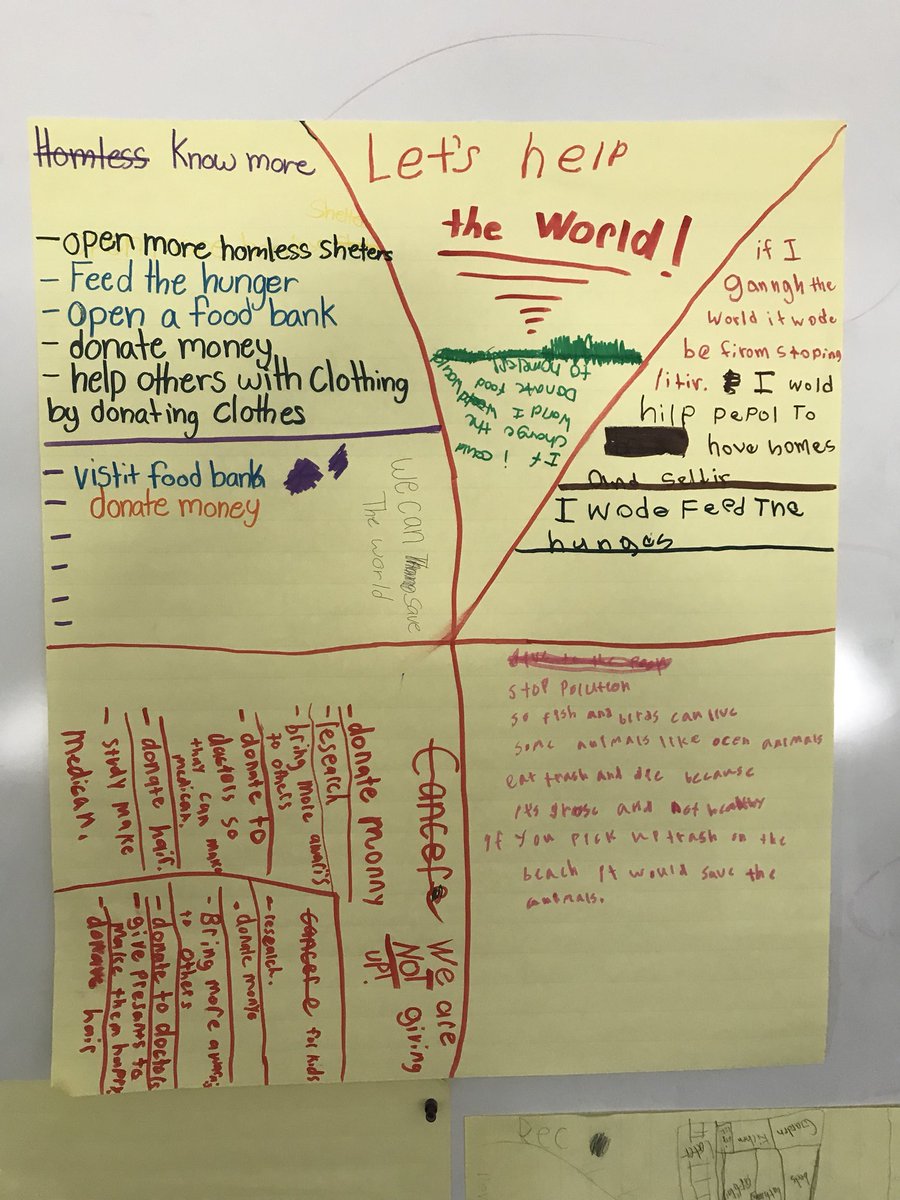 Homless Know more
- open more homless sheters
- Feed the hunger
- Open a food bank
- donate money
- help others with Clothing
by donating Clothes
- vistit food bank
donate money
We can save
The world
Let's help
the World!
If i could
change the
World I would
Donate food
to homeless
if I
ganngh the
World it wode
be firom stoping
litir. I wold
hilp pepol To
hove homes
and seltir
I wode Feed The
hunges
Cancer We are
NOT giving
up!
- donate monny
- research
- bring more awaris
to others
- donate to
doctors so
thay can make
medican.
- donate hair.
- study make
medican.
Cancere for kids
- research.
. donate monye
- Bring more
to others
- donate to doctors
- give presants to
make them happy
- donate hair
stop Polution
so fish and birds can live
some animals like ocen animals
eat trash and die because
its grose and not healthy
if you pick up trash on the
beach it would save the
animals.
Rec
Garden